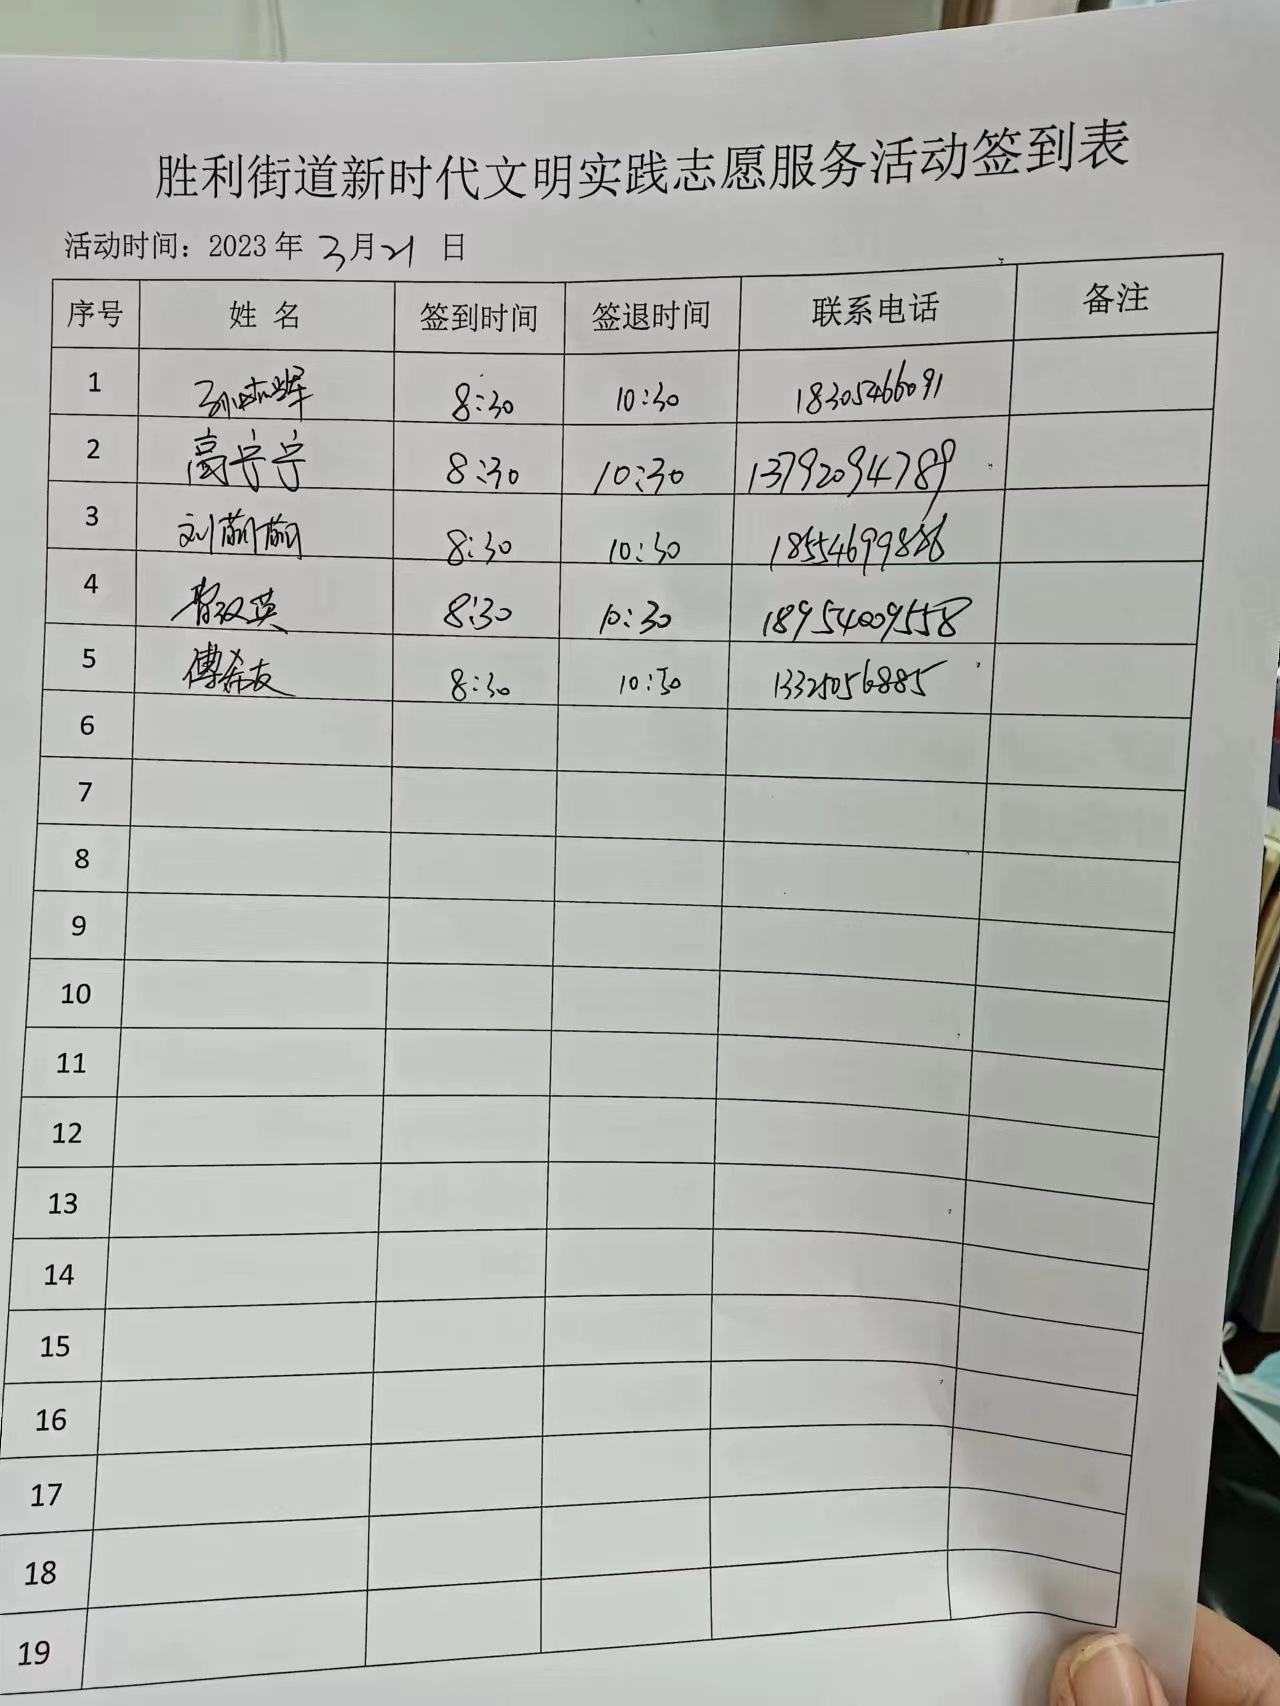 胜利街道新时代文明实践志愿服务活动签到表
活动时间：2023年 3月21日
序号 姓名 签到时间 签退时间 联系电话 备注
1 8:30 10:30 18305466091
2 高宁宁 8:30 10:30 13792094789
3 刘萌萌 8:30 10:30
4 8:30 10:30 18954009558
5 傅希友 8:30 10:30 13325056885
6
7
8
9
10
11
12
13
14
15
16
17
18
19